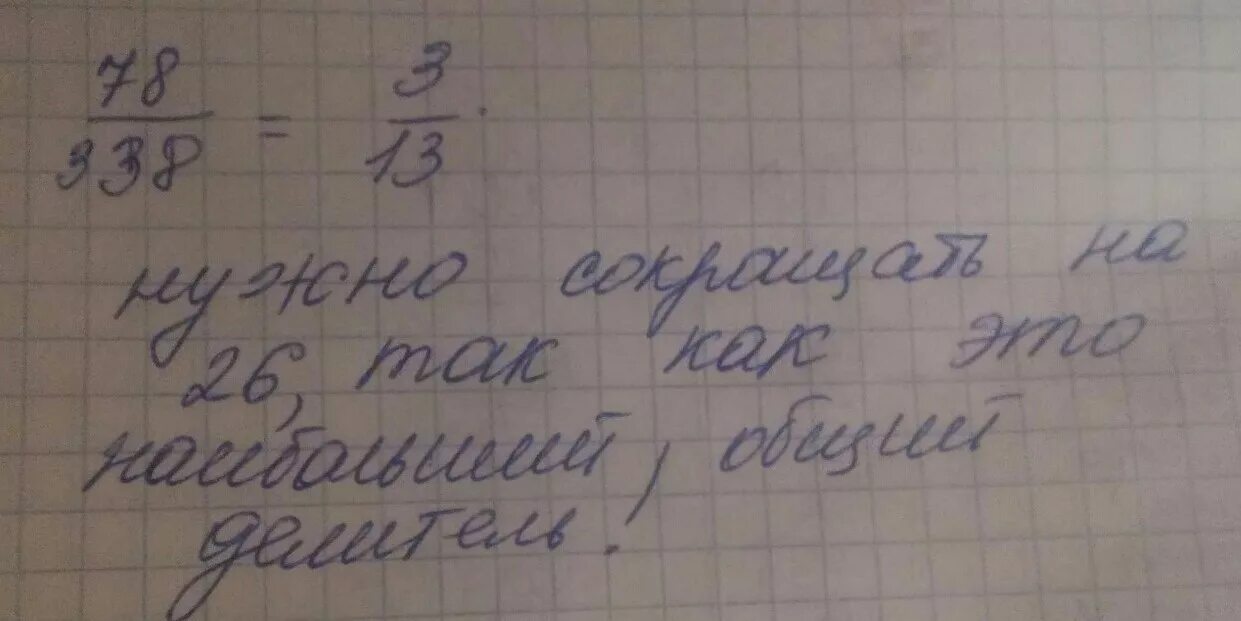 78/338 = 3/13.
нужно сокращать на
26, так как это
наибольший, общий
делитель.